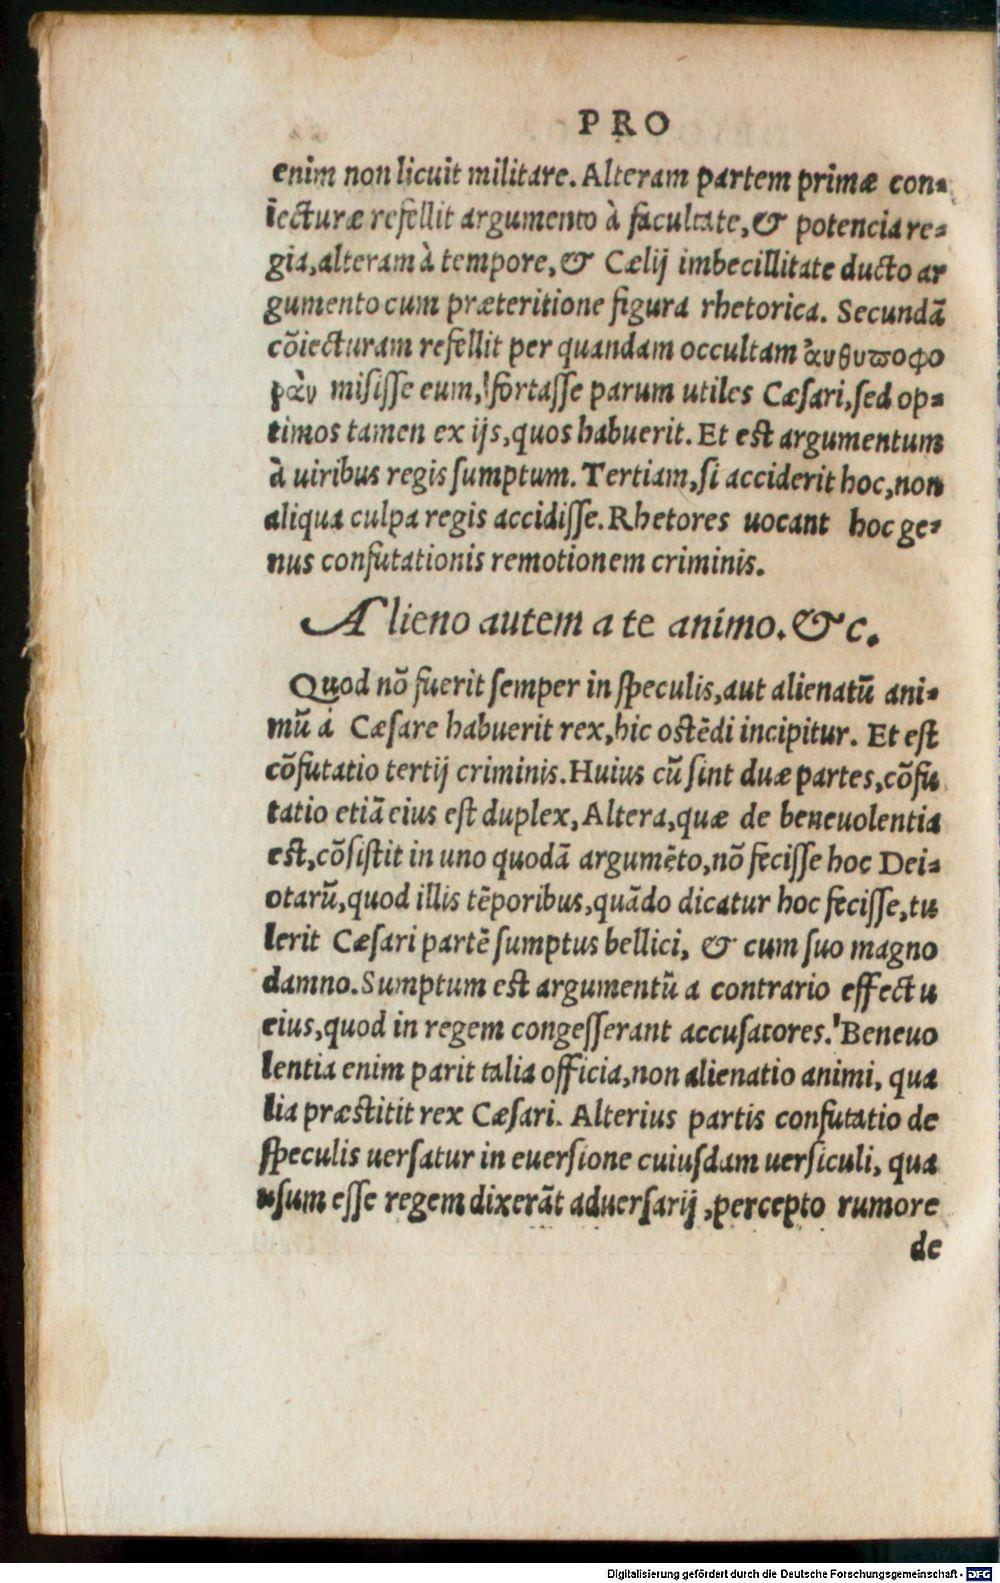 PRO
enim non licuit militare. Alteram partem primæ con-
iecturæ refellit argumento à facultate, & potencia re-
gia, alteram à tempore, & Cælij imbecillitate ducto ar
gumento cum præteritione figura rhetorica. Secundã
cõiecturam refellit per quandam occultam ἀνθυποφο
ρὰν misisse eum, fortasse parum utiles Cæsari, sed op-
timos tamen ex ijs, quos habuerit. Et est argumentum
à uiribus regis sumptum. Tertiam, si acciderit hoc, non
aliqua culpa regis accidisse. Rhetores uocant hoc ge-
nus confutationis remotionem criminis.
Alieno autem a te animo. &c.
Quod nõ fuerit semper in speculis, aut alienatũ ani-
mũ á Cæsare habuerit rex, hic ostẽdi incipitur. Et est
cõfutatio tertij criminis. Huius cũ sint duæ partes, cõfu
tatio etiã eius est duplex, Altera, quæ de beneuolentia
est, cõsistit in uno quodã argumẽto, nõ fecisse hoc Dei-
otarũ, quod illis tẽporibus, quãdo dicatur hoc fecisse, tu
lerit Cæsari partẽ sumptus bellici, & cum suo magno
damno. Sumptum est argumentũ a contrario effectu
eius, quod in regem congesserant accusatores. Beneuo
lentia enim parit talia officia, non alienatio animi, qua
lia præstitit rex Cæsari. Alterius partis confutatio de
speculis uersatur in euersione cuiusdam uersiculi, qua
usum esse regem dixerãt aduersarij, percepto rumore
de
Digitalisierung gefördert durch die Deutsche Forschungsgemeinschaft - DFG